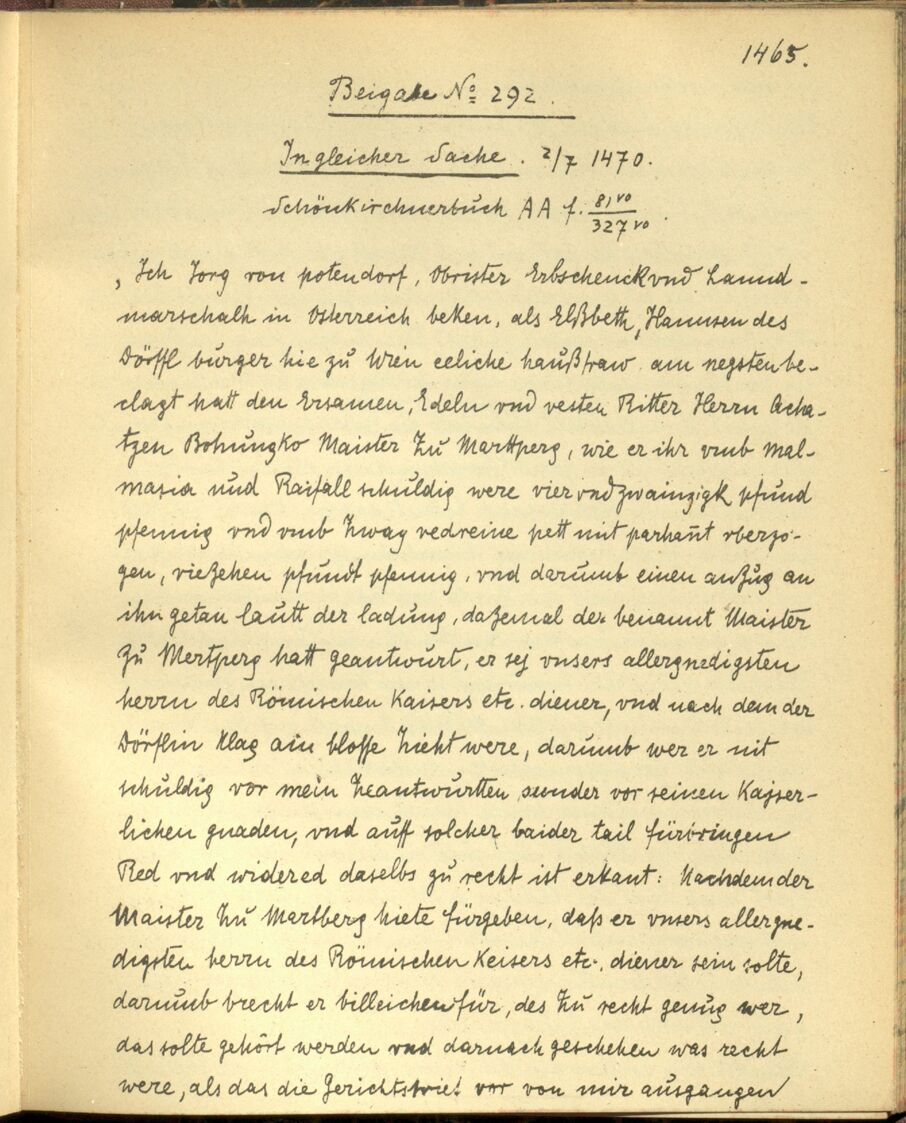 1465.
Beigabe No 292.
In gleicher Sache. 2/7 1470.
Schönkirchnerbuch AA f. 81vo/327vo.
„Ich Jorg von potendorf, Obrister Erbschenck vnd Lannd-
marschalh in Osterreich beken, als Elßbeth, Hannsen des
Dörffl burger hie zu Wien eeliche haußfraw am negsten be-
clagt hatt den Ersamen, Edeln vnd vesten Ritter Herrn Acha-
tzen Bohungko Maister zu Marttperg, wie er ihr vmb mal-
masia und Raifall schuldig were vier vnd zwainzigk pfund
pfennig vnd vmb zway vedreine pett mit parhant vberzo-
gen, viezehen pfundt pfennig, vnd darumb einen anzug an
ihn getan lautt der ladung, dazemal der benannt Maister
zu Mertperg hatt geantwurt, er sej vnsers allergnedigsten
herrn des Römischen Kaisers etc. diener, vnd nach dem der
Dörflin klag ain blosse zicht were, darumb wer er nit
schuldig vor mein zeantwurtten sunder vor seinen Kayser-
lichen gnaden, vnd auff solcher baider tail fürbringen
Red vnd widered daselbs zu recht ist erkant: Nachdem der
Maister zu Martberg hiete fürgeben, dass er vnsers allergne-
digsten herrn des Römischen Keisers etc. diener sein solte,
darumb brecht er billeichen für, des zu recht genug wer,
das solte gehört werden vnd darnach geschehen was recht
were, als das die Gerichtsbrief vor von mir ausgangen